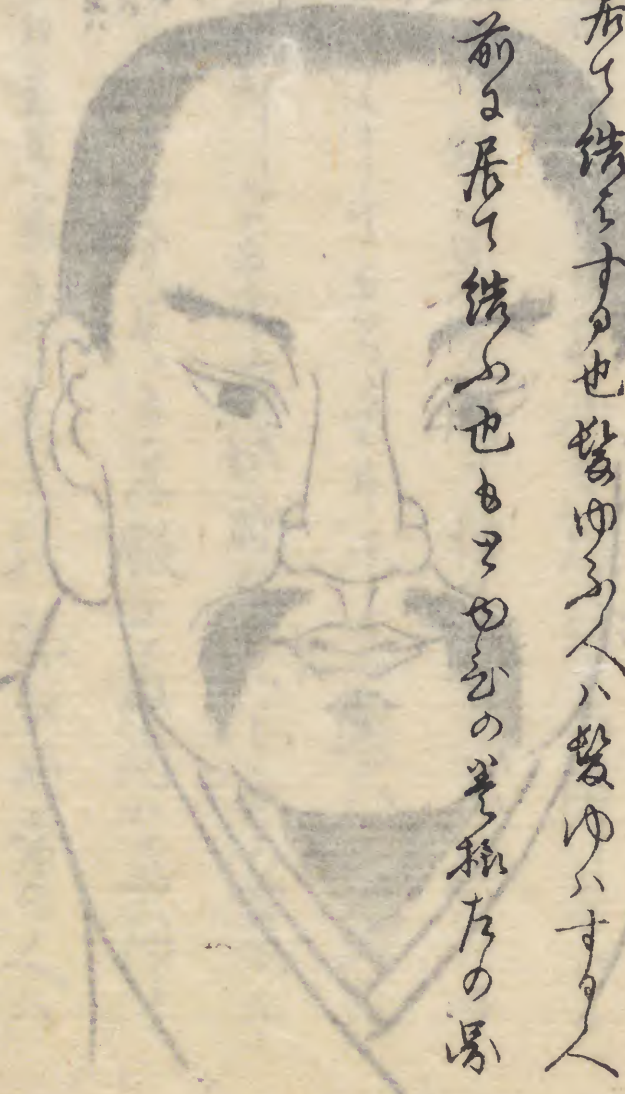 居て結はする也髪ゆふ人ハ髪ゆハする人
前に居て結ふ也もとゆひの巻様左の圖